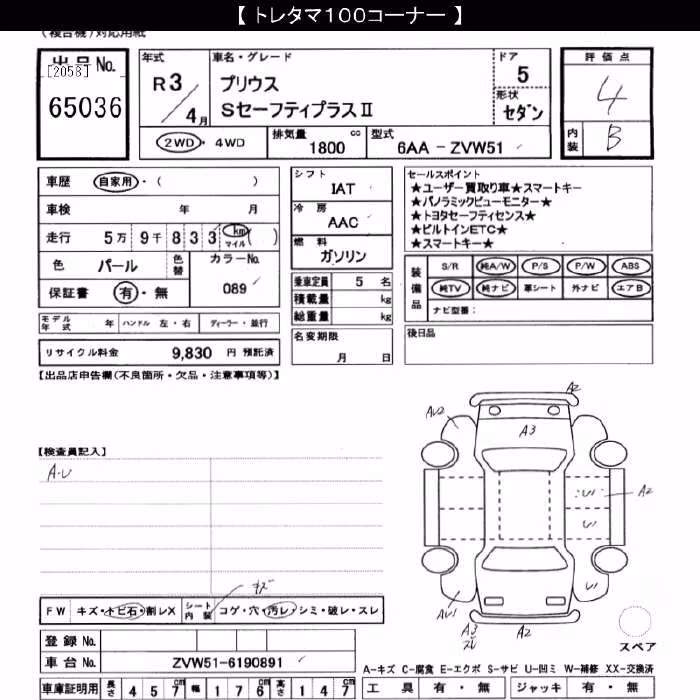 【 トレタマ100コーナー 】
(複合機)対応用紙
出品No.
[2058]
65036
年式
R3/4月
車名・グレード
プリウス
SセーフティプラスⅡ
ドア
5
形状
セダン
評価点
4
内装
B
2WD・4WD
排気量
1800 cc
型式
6AA - ZVW51
車歴 自家用・( )
車検 年 月
走行 5万 9千 8 3 3 km マイル ( )
色 パール
色替
カラーNo.
089
保証書 有・無
シフト
IAT
冷房
AAC
燃料
ガソリン
乗車定員 5 名
積載量 kg
総重量 kg
セールスポイント
★ユーザー買取り車★スマートキー
★パノラミックビューモニター★
★トヨタセーフティセンス★
★ビルトインETC★
★スマートキー★
装備品
S/R 純A/W P/S P/W ABS
純TV 純ナビ 革シート 外ナビ エアB
ナビ型番:
モデル年式 年 ハンドル 左・右 ディーラー・並行
リサイクル料金 9,830 円 預託済
名変期限
月 日
後日品
【出品店申告欄(不良箇所・欠品・注意事項等)】
【検査員記入】
A-U
A2
AU2
A3
A2
AU1
A3
A2
スペア
FW キズ・トビ石・割レX
シート内装 コゲ・穴・汚レ・シミ・破レ・スレ
キズ
登録No.
車台No. ZVW51-6190891
車庫証明用 長さ 4 5 7 cm 幅 1 7 6 cm 高さ 1 4 7 cm
A-キズ C-腐食 E-エクボ S-サビ U-凹ミ W-補修 XX-交換済
工具 有・無 ジャッキ 有・無